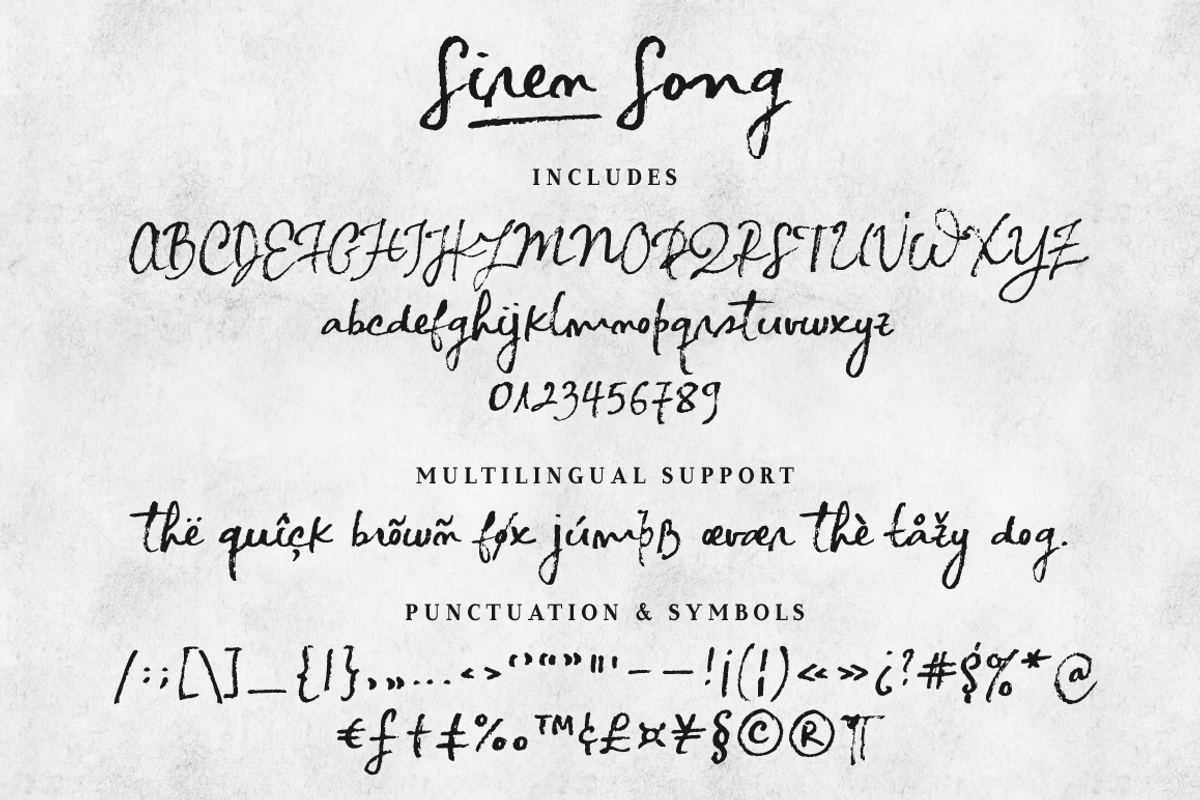 Siren Song
INCLUDES
ABCDEFGHIJKLMNOPQRSTUVWXYZ
abcdefghijklmnopqrstuvwxyz
0123456789
MULTILINGUAL SUPPORT
thë quîçk brõwñ føx júmþß œvær thè łåžy dog.
PUNCTUATION & SYMBOLS
/:;[\]_{|}‚„…‹›‘’“”"'–—!¡(¦)«»¿?#$%*@
€ƒ†‡‰™¢£¤¥§©®¶